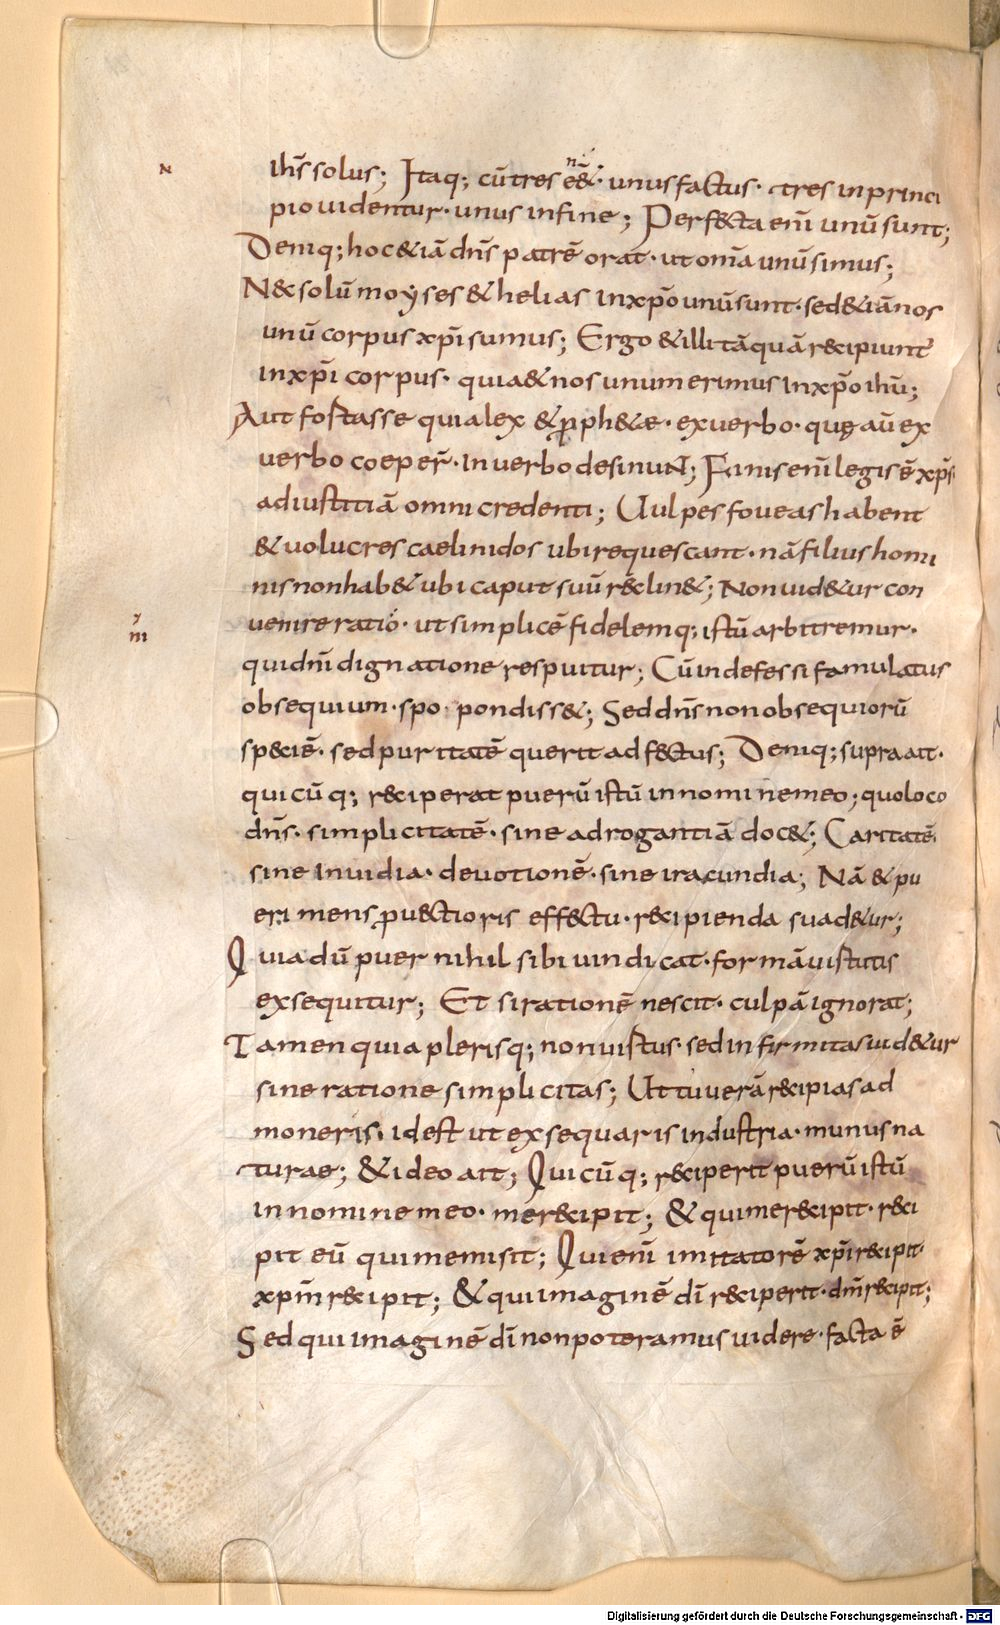 N
ih̄s solus; Itaq; cū tres eēt · unus factus · tres in princi
pio uidentur · unus in fine; Perfecta enī unū sunt;
Deniq; hoc &iā dn̄s patrē orat · ut om̄a unū simus;
N& solū moẏses & helias in xp̄o unū sunt · sed &iā nos
unū corpus xp̄i sumus; Ergo & illi tāquā recipiunt
in xp̄i corpus · quia & nos unum erimus in xp̄o ihū;
Aut fortasse quia lex & p̱ph&ae · ex uerbo · quę aū ex
uerbo coeper̄ · in uerbo desinuNt; Finis enī legis ē xp̄s
ad iustitiā omni credenti; Uulpes foueas habent
& uolucres caeli nidos ubi requescant · nā filius homi
nis non hab& ubi caput suū reclin&; Non uid&ur con
ÿ
m
uenire ratio · ut simplicē fidelemq; istū arbitremur ·
qui dnī dignatione respuitur; Cū indefessi famulatus
obsequium · spopondiss&; Sed dn̄s non obsequiorū
speciē · sed puritatē querit adfectus; Deniq; supra ait ·
qui cūq; reciperat puerū istū in nomine meo; quo loco
dn̄s · simplicitatē · sine adrogantiā doc&; Caritatē
sine inuidia · deuotionē · sine iracundia; Nā & pu
eri mens p̱uectioris effectu · recipienda suad&ur;
Quia dū puer nihil sibi uindicat · formā uistitis
exsequitur; Et si rationē nescit · culpā ignorat;
Tamen quia plerisq; non uistus · sed infirmitas uid&ur
sine ratione simplicitas; Ut tu uerā recipias ad
moneris, id est ut exsequaris industria · munus na
turae; & ideo ait; Qui cūq; receperit puerū istū
in nomine meo · me recipit; & qui me recipit · reci
pit eū qui me misit; Qui enī imitatorē xp̄i recipit ·
xpm̄ recipit; & qui imaginē dī receperit · dm̄ recipit;
Sed qui imaginē dī non poteramus uidere · facta ē
Digitalisierung gefördert durch die Deutsche Forschungsgemeinschaft - DFG